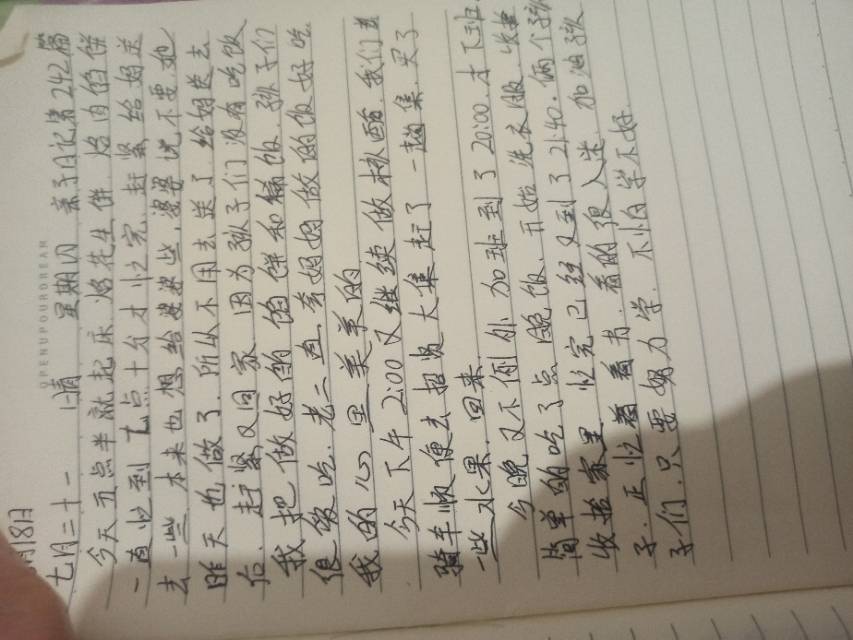 OPENUPOURDREAM
月18日
七月二十一 晴 星期四 亲子日记第242篇
今天五点半就起床烙花生饼 烙肉的饼
一直忙到七点十分才忙完.赶紧给妈送
去一些 本来也想给婆婆些,婆婆说不要.她
昨天也做了.所以不用去送了.给妈送去
后.赶紧又回家 因为孩子们没有吃饭
我把做好的馅饼和稀饭.孩子们
很能吃.老二直夸妈妈做的饭好吃
我的心里美美的
今天下午2:00又继续做 我们去
骑车顺便去招贤大集赶了一趟集.买了
一些水果.回来
今晚又不例外.加班到了20:00.才下班.
简单的吃了点晚饭.开始洗衣服 收拾
收拾家里.忙完已经又到了21:40.俩个孩
子.正忙着看书.看的很入迷 加油孩
子们.只要努力学.不怕学不好.